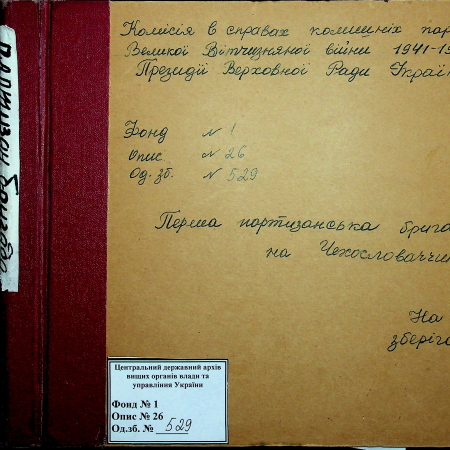 Комісія в справах колишніх пар
Великої Вітчизняної війни 1941-19
Президії Верховної Ради Украї
Фонд № 1
Опис № 26
Од. зб. № 529
Перша партизанська брига
на Чехословаччи
На
зберіга
Центральний державний архів
вищих органів влади та
управління України
Фонд № 1
Опис № 26
Од.зб. № 529